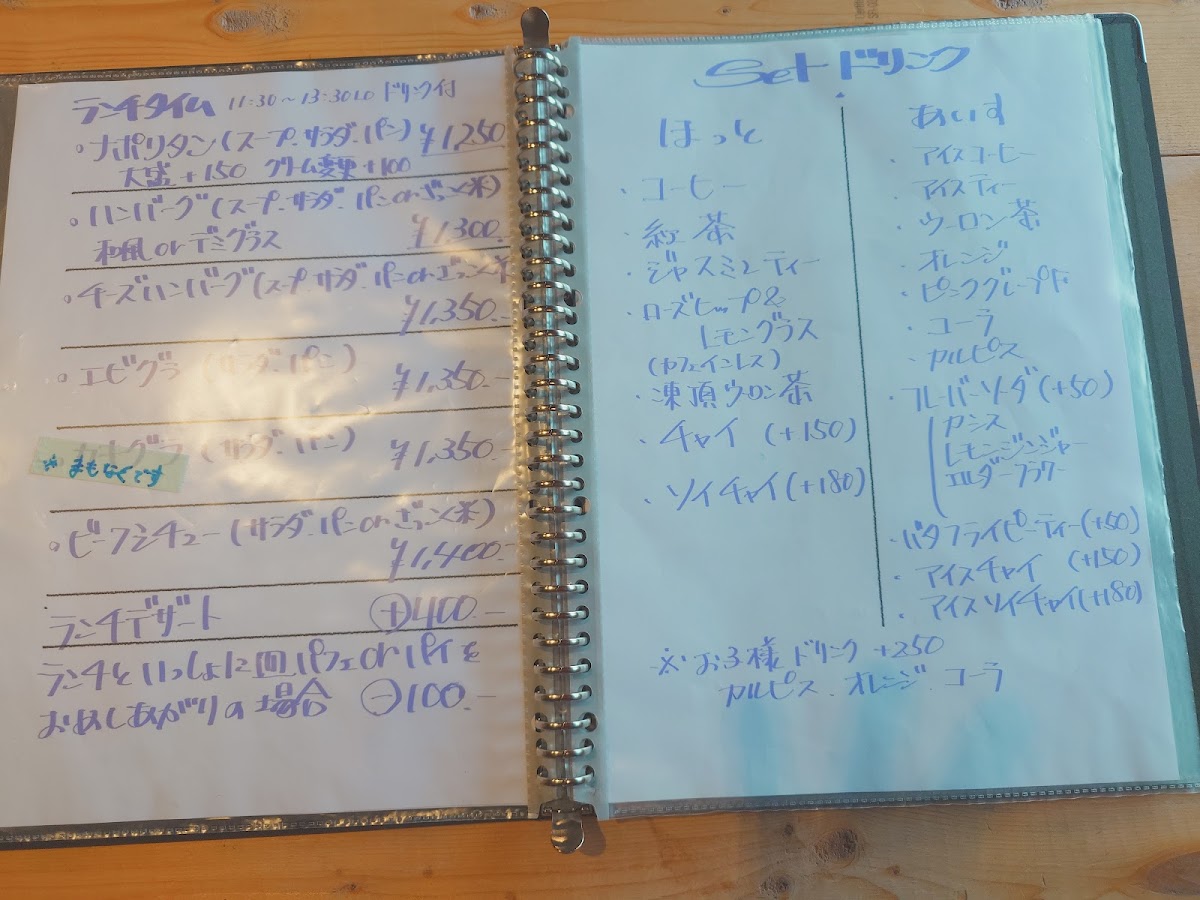 ランチタイム 11:30〜13:30LO ドリンク付
・ナポリタン(スープ.サラダ.パン) ¥1,250
大盛+150 クリーム変更+100
・ハンバーグ(スープ.サラダ.パンorざっこく米)
和風orデミグラス ¥1,300.
・チーズハンバーグ(スープ.サラダ.パンorざっこく米
¥1,350.-
・エビグラ (サラダ.パン)
¥1,350.-
カキグラ (サラダ.パン)
※まもなくです
¥1,350.-
・ビーフシチュー(サラダ.パンorざっこく米)
¥1,400.-
ランチデザート ⊕400.-
ランチといっしょに皿パフェorパイを
おめしあがりの場合 ⊖100.-
Setドリンク
ほっと
・コーヒー
・紅茶
・ジャスミンティー
・ローズヒップ&
レモングラス
(カフェインレス)
・凍頂ウーロン茶
・チャイ (+150)
・ソイチャイ(+180)
あいす
・アイスコーヒー
・アイスティー
・ウーロン茶
・オレンジ
・ピンクグレープF
・コーラ
・カルピス
・フレーバーソーダ(+50)
カシス
レモンジンジャー
エルダーフラワー
・バタフライピーティー(+50)
・アイスチャイ (+150)
・アイスソイチャイ(+180)
※お子様ドリンク +250
カルピス.オレンジ.コーラ